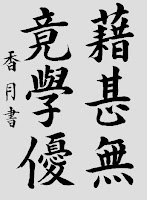 藉甚無
竟學優
香月書